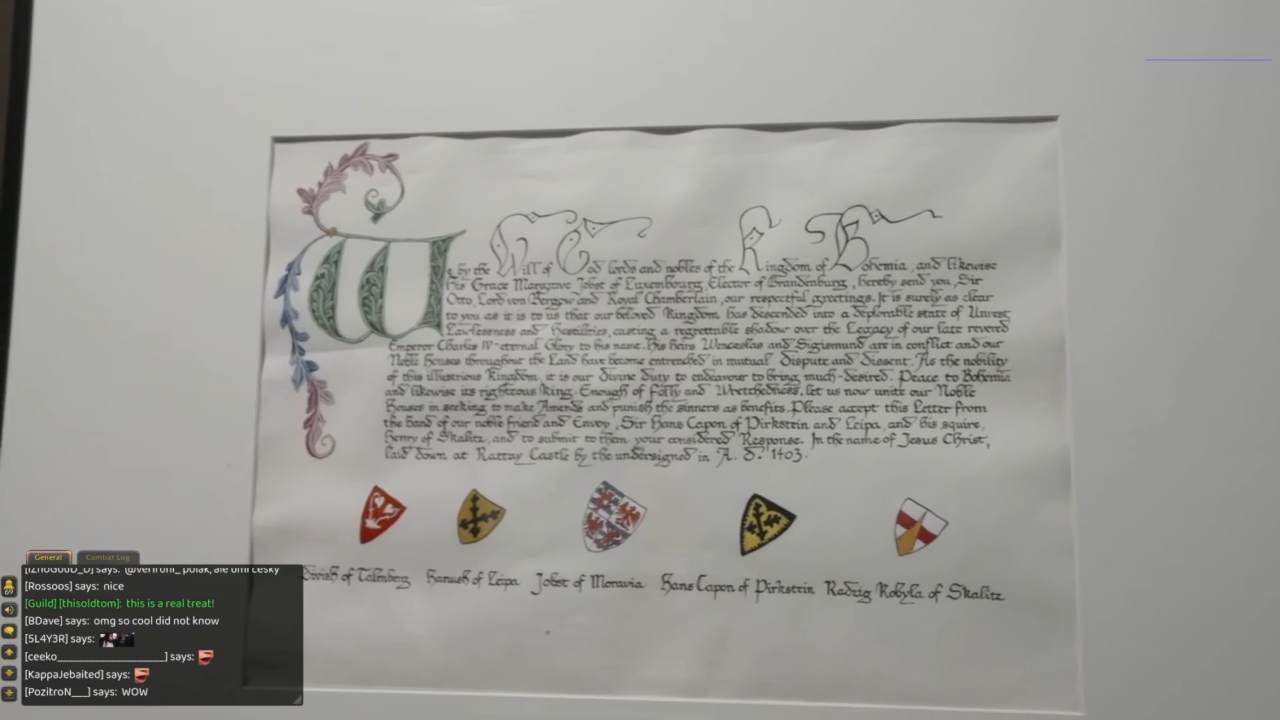 We by the Will of God lords and nobles of the Kingdom of Bohemia, and likewise
His Grace Margrave Jobst of Luxembourg Elector of Brandenburg, hereby send you, Sir
Otto, Lord von Bergow and Royal Chamberlain, our respectful greetings. It is surely as clear
to you as it is to us that our beloved Kingdom has descended into a deplorable state of Unrest
Lawlessness and Hostilities, casting a regrettable shadow over the Legacy of our late revered
Emperor Charles IV-eternal Glory to his name. His heirs Wenceslas and Sigismund are in conflict and our
Noble Houses throughout the Land have become entrenched in mutual Dispute and Dissent. As the nobility
of this illustrious Kingdom, it is our divine duty to endeavour to bring much-desired. Peace to Bohemia
and likewise its righteous King. Enough of Folly and Wretchedness, let us now unite our Noble
Houses in seeking to make Amends and punish the sinners as benefits. Please accept this Letter from
the hand of our noble friend and Envoy, Sir Hans Capon of Pirkstein and Leipa, and his squire,
Henry of Skalitz, and to submit to them your considered Response. In the name of Jesus Christ,
laid down at Rattay Castle by the undersigned in A. D. 1403.
Divish of Talmberg Hanush of Leipa Jobst of Moravia Hans Capon of Pirkstein Radzig Kobyla of Skalitz
General Combat Log
says: polak, ale umi cesky
[Rossoos] says: nice
[Guild] [thisoldtom]: this is a real treat!
[BDave] says: omg so cool did not know
[5L4Y3R] says:
[ceeko____________________] says:
[KappaJebaited] says:
[PozitroN___] says: WOW
69